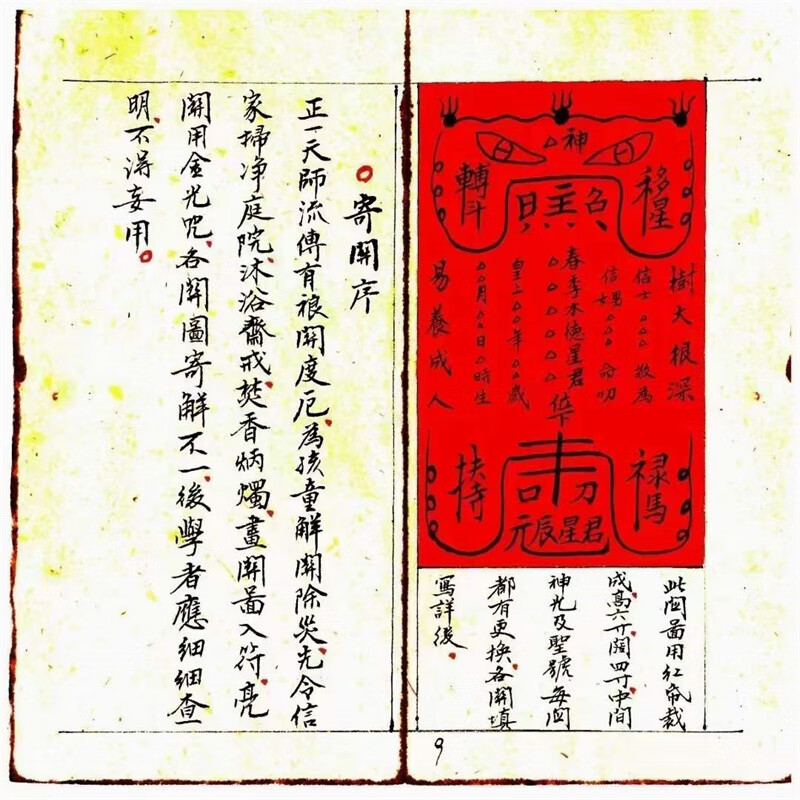 神
移星
轉斗
樹大根深
信士△△△敬為
信男女△△△命叩
春季木德星君
位下
皇上△△年△歲
△△月△△日△時生
易養成人
祿馬
扶持
元辰星君
此関圖用紅帋裁
成高六寸闊四寸中間
神光及聖號每関
都有更換各関填
寫詳後
9
寄関序
正一天師流傳有禳関度厄為孩童解関除災先令信
家掃净庭院沐浴齋戒焚香炳燭畫関圖入符亮
関用金光咒各関圖寄解不一後學者應細細查
明不得妄用